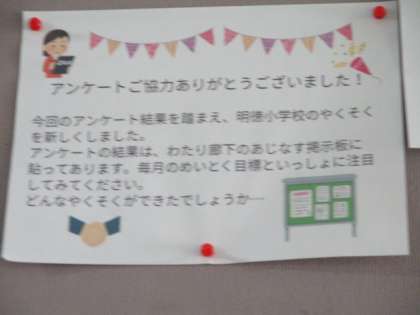 アンケートご協力ありがとうございました！
今回のアンケート結果を踏まえ、明徳小学校のやくそく
を新しくしました。
アンケートの結果は、わたり廊下のあじなす掲示板に
貼ってあります。毎月のめいとく目標といっしょに注目
してみてください。
どんなやくそくができたでしょうか…